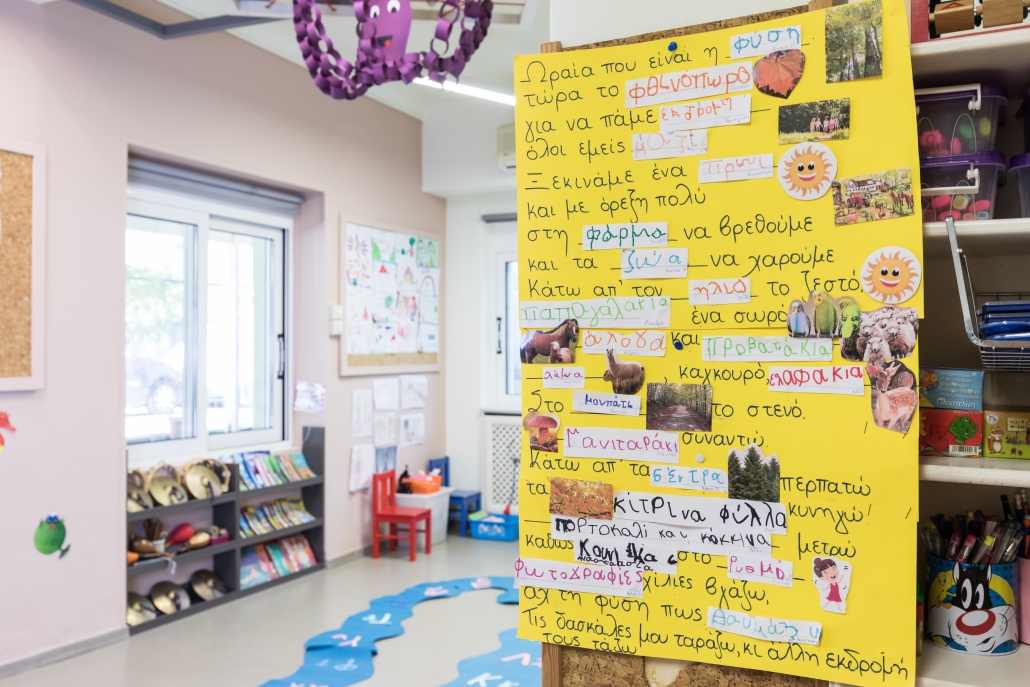 Ωραία που είναι η φύση
τώρα το φθινόπωρο
για να πάμε εκδρομή
όλοι εμείς μαζί
Ξεκινάμε ένα πρωι
και με όρεξη πολύ
στη φάρμα να βρεθούμε
και τα ζώα να χαρούμε
Κάτω απ' τον ηλιο το ζεστό,
παπαγαλακια ένα σωρό
άλογα και προβατάκια
λάμα καγκουρό, ελαφακια
Στο μονπάτι το στενό.
Μανιταράκι συναντώ.
Κάτω απ' τα δέντρα περπατώ
τα κίτρινα φύλλα κυνηγώ!
πορτοκαλί και κόκκινα μετρώ
καθώς στο ρυθμό
φωτογραφίες χίλιες βγάζω,
αχ τη φύση πως θαυμάζω
Τις δασκάλες μου ταράζω, κι άλλη εκδρομή
τους τάζω